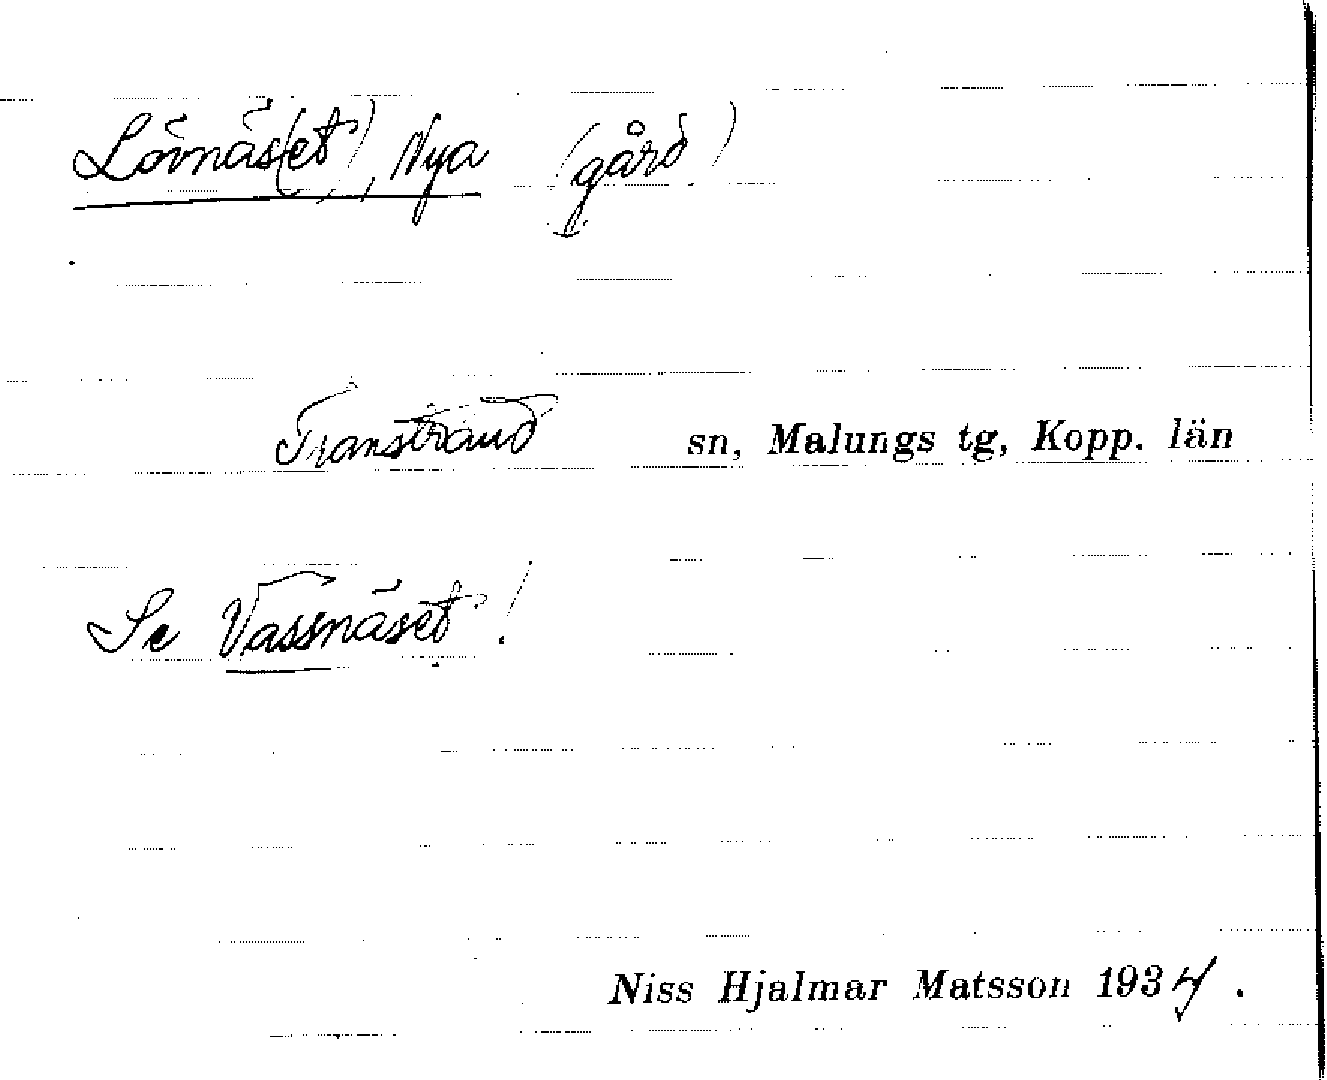 Lövnäs(et), Nya (gård)
Transtrand sn, Malungs tg, Kopp. län
Se Vassnäset!
Niss Hjalmar Matsson 1934.